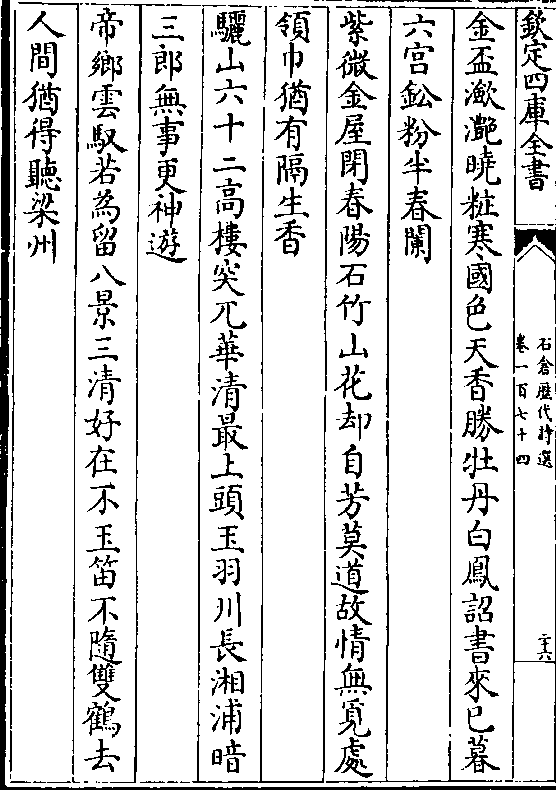 欽定四庫全書
石倉歷代詩選
卷一百七十四
二十六
金盃瀲灧曉粧寒國色天香勝牡丹白鳳詔書來已暮
六宮鉛粉半春闌
紫微金屋閉春陽石竹山花却自芳莫道故情無覓處
領巾猶有隔生香
驪山六十二高樓突兀華清最上頭玉羽川長湘浦暗
三郎無事更神遊
帝鄉雲馭若為留八景三清好在不玉笛不隨雙鶴去
人間猶得聽梁州